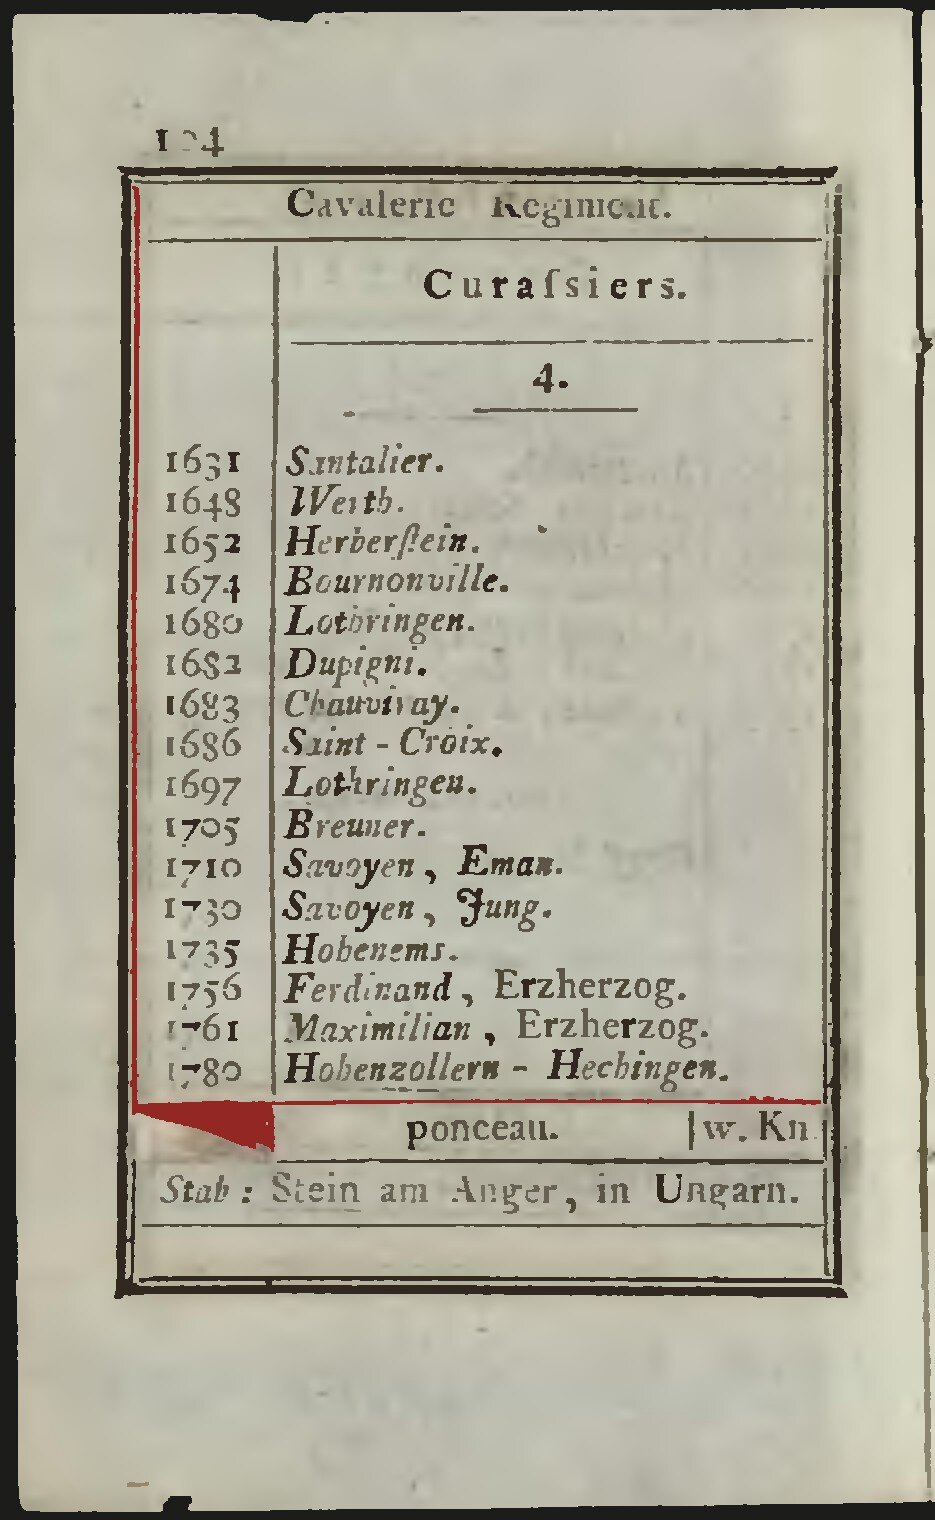 104
Cavalerie Regiment.
Curaſsiers.
4.
1631 Santalier.
1648 Werth.
1652 Herberſtein.
1674 Bournonville.
1680 Lothringen.
1682 Dupigni.
1683 Chauviray.
1686 Saint - Croix.
1697 Lothringen.
1705 Breuner.
1710 Savoyen, Eman.
1730 Savoyen, Jung.
1735 Hohenems.
1756 Ferdinand, Erzherzog.
1761 Maximilian, Erzherzog.
1780 Hohenzollern - Hechingen.
ponceau. w. Kn.
Stab: Stein am Anger, in Ungarn.